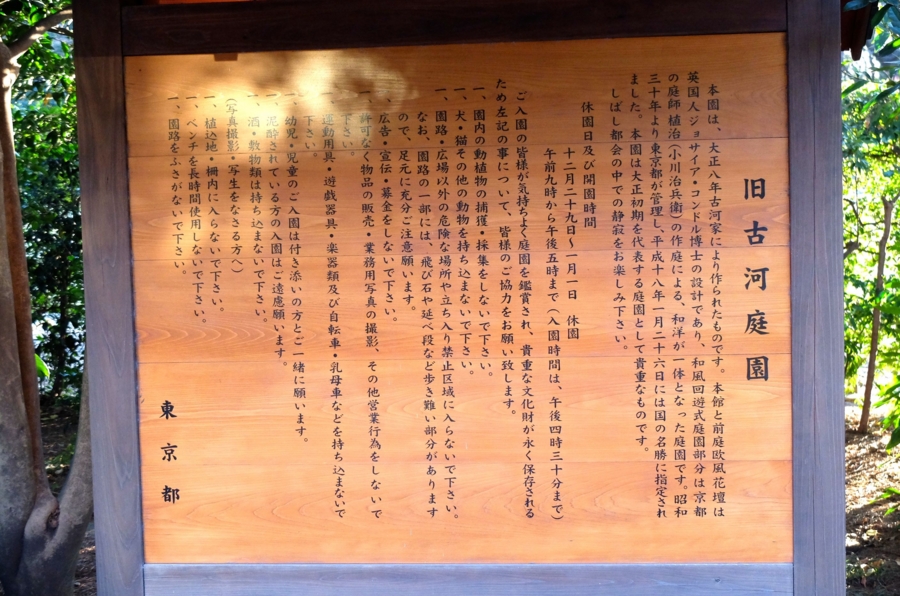 旧古河庭園
本園は、大正八年古河家により作られたものです。本館と前庭欧風花壇は
英国人ジョサイア・コンドル博士の設計であり、和風回遊式庭園部分は京都
の庭師植治（小川治兵衛）の作庭による、和洋が一体となった庭園です。昭和
三十年より東京都が管理し、平成十八年一月二十六日には国の名勝に指定され
ました。本園は大正初期を代表する庭園として貴重なものです。
しばし都会の中での静寂をお楽しみ下さい。
休園日及び開園時間
十二月二十九日～一月一日 休園
午前九時から午後五時まで（入園時間は、午後四時三十分まで）
ご入園の皆様が気持ちよく庭園を鑑賞され、貴重な文化財が永く保存される
ため左記の事について、皆様のご協力をお願い致します。
一、園内の動植物の捕獲・採集をしないで下さい。
一、犬・猫その他の動物を持ち込まないで下さい。
一、園路・広場以外の危険な場所や立ち入り禁止区域に入らないで下さい。
なお、園路の一部には、飛び石や延べ段など歩き難い部分があります
ので、足元に充分ご注意願います。
一、広告・宣伝・募金をしないで下さい。
一、許可なく物品の販売・業務用写真の撮影、その他営業行為をしないで
下さい。
一、運動用具・遊戯器具・楽器類及び自転車・乳母車などを持ち込まないで
下さい。
一、幼児・児童のご入園は付き添いの方とご一緒に願います。
一、泥酔されている方の入園はご遠慮願います。
一、酒・敷物類は持ち込まないで下さい。
（写真撮影・写生をなさる方へ）
一、植込地・柵内に入らないで下さい。
一、ベンチを長時間使用しないで下さい。
一、園路をふさがないで下さい。
東京都